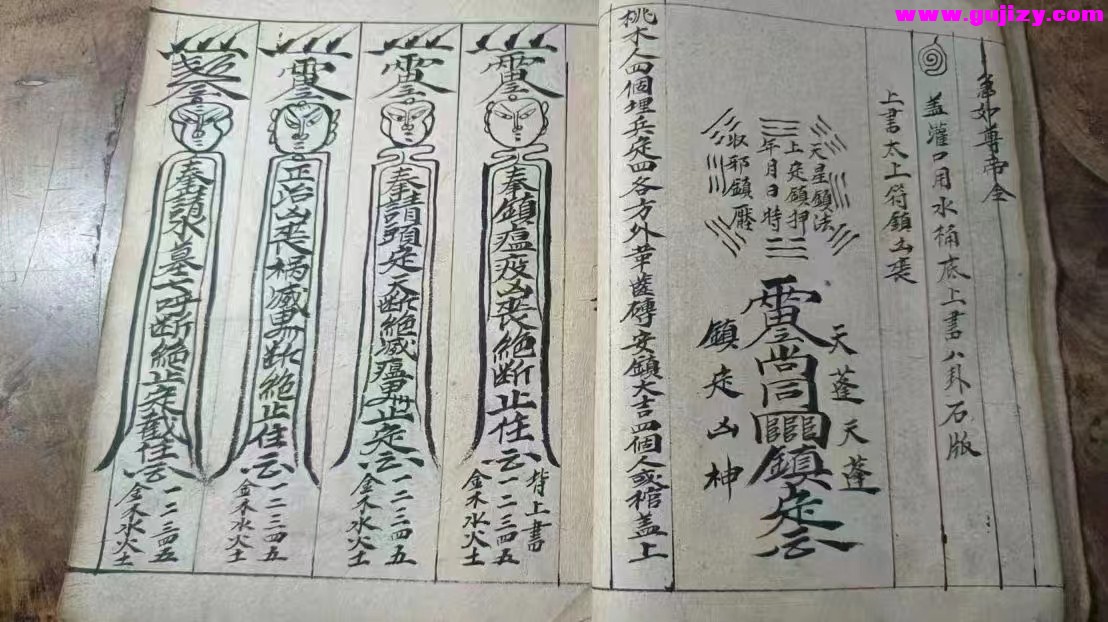 www.gujizy.com
尊帝令
蓋灌口用水桶底上書八卦石版
上書太上符鎮凶喪
天星鎮法
上定鎮押
年月日時
收邪鎮壓
天蓬天蓬
尚同
鎮定
鎮定凶神
桃木人四個埋兵定四各方外華蓋磚安鎮大吉四個人或棺蓋上
奉鎮瘟疫凶喪絕斷止住
背上書
一二三四五
金木水火土
奉請頭定天断絕滅瘟止定
一二三四五
金木水火土
正治凶喪禍滅断絕止住
一二三四五
金木水火土
奉請永墓下呼断絕止定截住
一二三四五
金木水火土